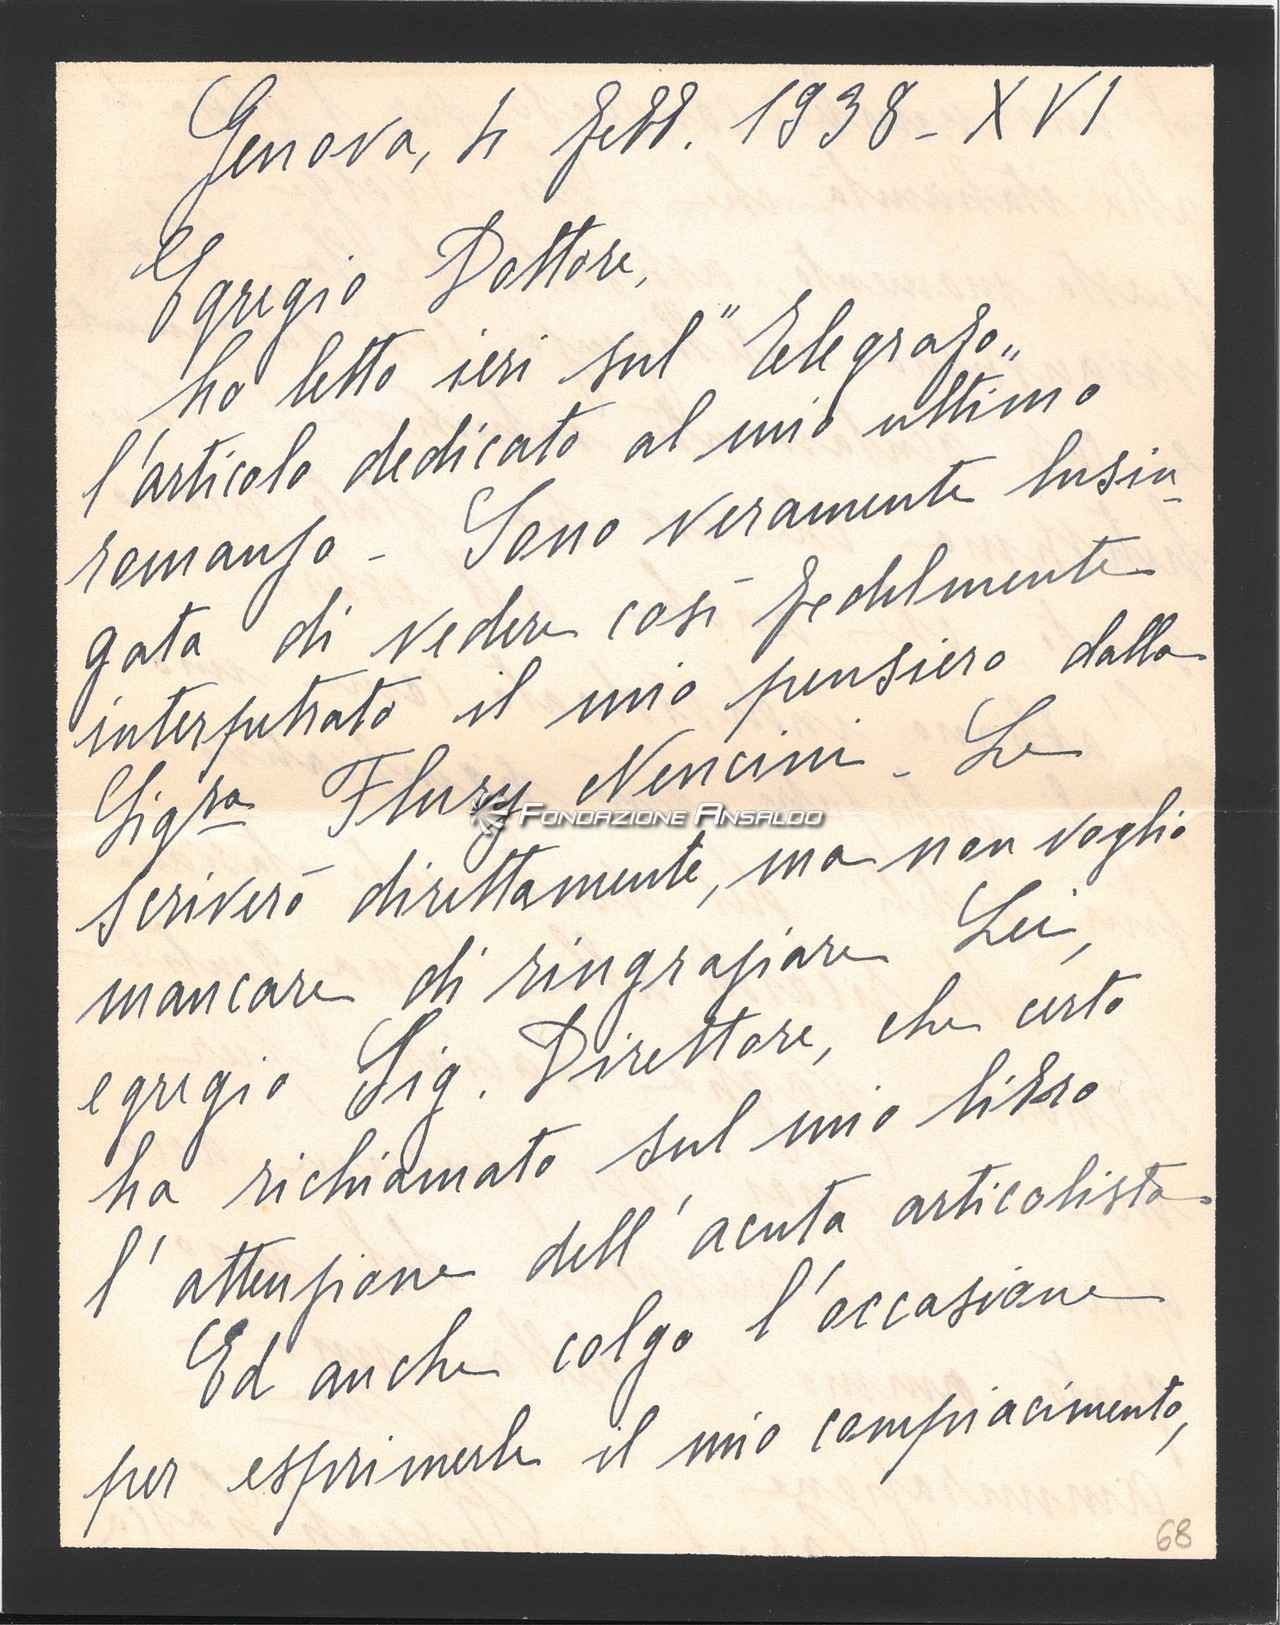 Genova, 4 febb. 1938 - XVI
Egregio Dottore,
ho letto ieri sul "Telegrafo„
l'articolo dedicato al mio ultimo
romanzo - Sono veramente lusin-
gata di vedere così fedelmente
interpetrato il mio pensiero dalla
Sigra Flury Nencini - Le
scriverò direttamente, ma non voglio
mancare di ringraziare Lei,
egregio Sig. Direttore, che certo
ha richiamato sul mio libro
l'attenzione dell'acuta articolista.
Ed anche colgo l'occasione
per esprimerle il mio compiacimento,
68
Fondazione Ansaldo